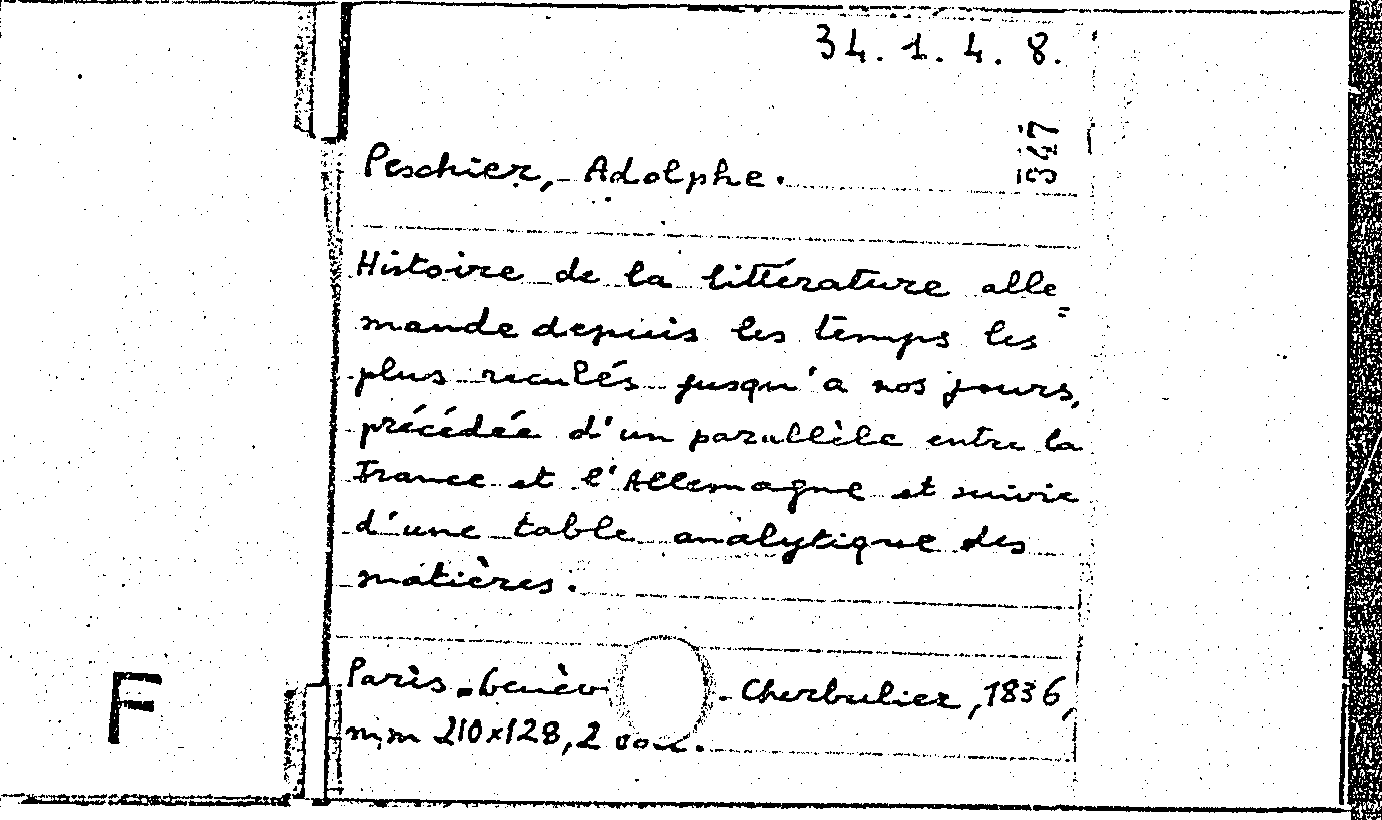 34.1.4.8.
347
Peschier, Adolphe.
Histoire de la littérature alle=
mande depuis les temps les
plus reculés jusqu'a nos jours,
précédée d'un parallèle entre la
France et l'Allemagne et suivie
d'une table analytique des
matières.
Paris - Genèv - Cherbuliez, 1836,
m,m 210x128, 2 vol.
F